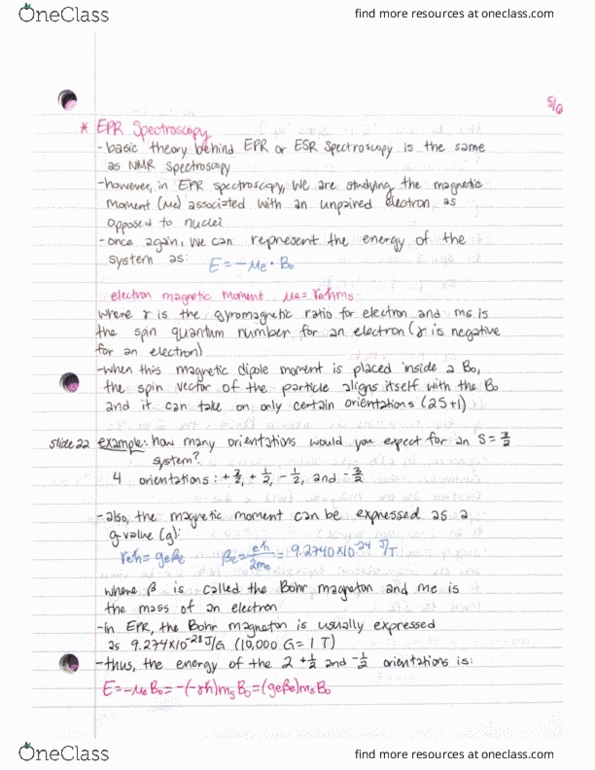 OneClass
find more resources at oneclass.com
5/6
* EPR Spectroscopy
- basic theory behind EPR or ESR Spectroscopy is the same
as NMR Spectroscopy
- however, in EPR spectroscopy, we are studying the magnetic
moment (μe) associated with an unpaired electron as
opposed to nuclei
- once again, we can represent the energy of the
system as:
E = -μe • B₀
electron magnetic moment μe = γeħms
where γ is the gyromagnetic ratio for electron and ms is
the spin quantum number for an electron (γ is negative
for an electron)
- when this magnetic dipole moment is placed inside a B₀,
the spin vector of the particle aligns itself with the B₀
and it can take on only certain orientations (2S+1)
slide 22 example: how many orientations would you expect for an S = 3/2
system?
4 orientations: +3/2, +1/2, -1/2, and -3/2
- also, the magnetic moment can be expressed as a
g-value (g):
γeħ = geβe βe = eħ/2me = 9.2740×10⁻²⁴ J/T
where β is called the Bohr magneton and me is
the mass of an electron
- in EPR, the Bohr magneton is usually expressed
as 9.274×10⁻²⁸ J/G (10,000 G = 1 T)
- thus, the energy of the 2 +1/2 and -1/2 orientations is:
E = -μeB₀ = -(-γħ)msB₀ = (geβe)msB₀
OneClass
find more resources at oneclass.com